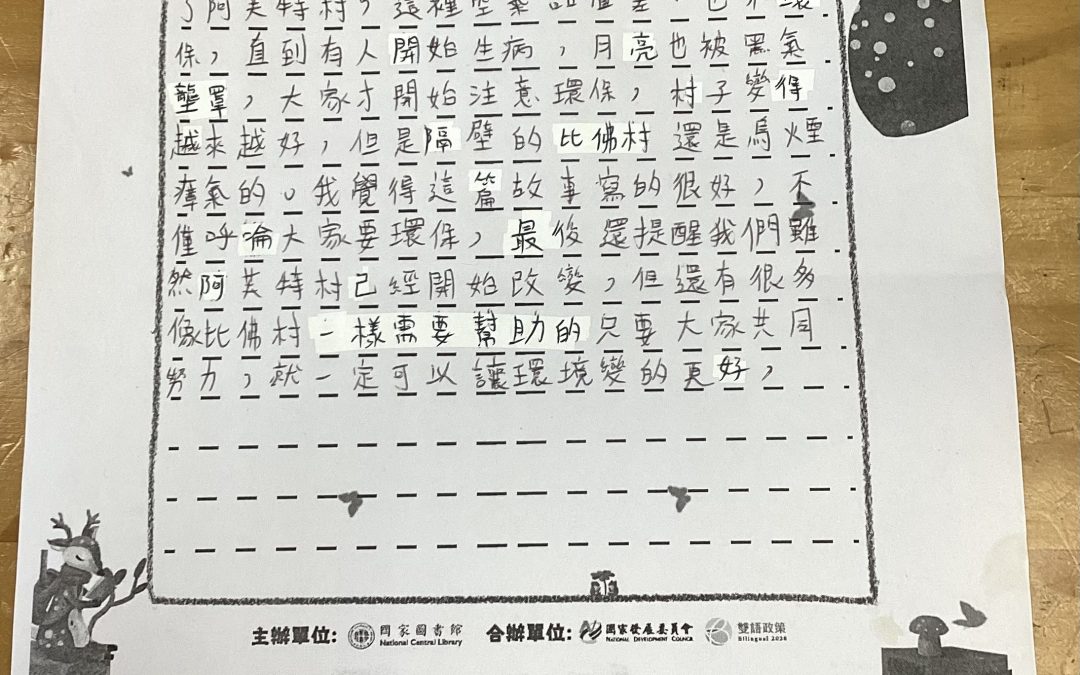 了阿芙特村，這裡空氣品質差，也不環
保，直到有人開始生病，月亮也被黑氣
壟罩，大家才開始注意環保，村子變得
越來越好，但是隔壁的比佛村還是烏煙
瘴氣的。我覺得這篇故事寫的很好，不
僅呼淪大家要環保，最後還提醒我們雖
然阿芙特村已經開始改變，但還有很多
像比佛村一樣需要幫助的只要大家共同
努力，就一定可以讓環境變的更好，
主辦單位: 國家圖書館 National Central Library 合辦單位: 國家發展委員會 National Development Council 雙語政策 Bilingual 2030